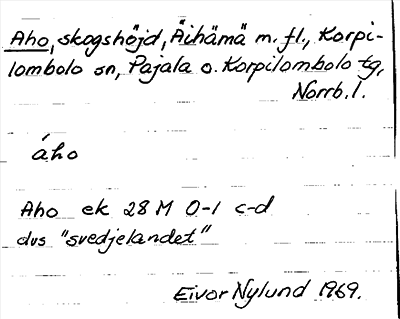 Aho, skogshöjd, Äihämä m. fl., Korpi-
lombolo sn, Pajala o. Korpilombolo tg,
Norrb. l.
áho
Aho ek 28 M 0-1 c-d
dvs "svedjelandet"
Eivor Nylund 1969.